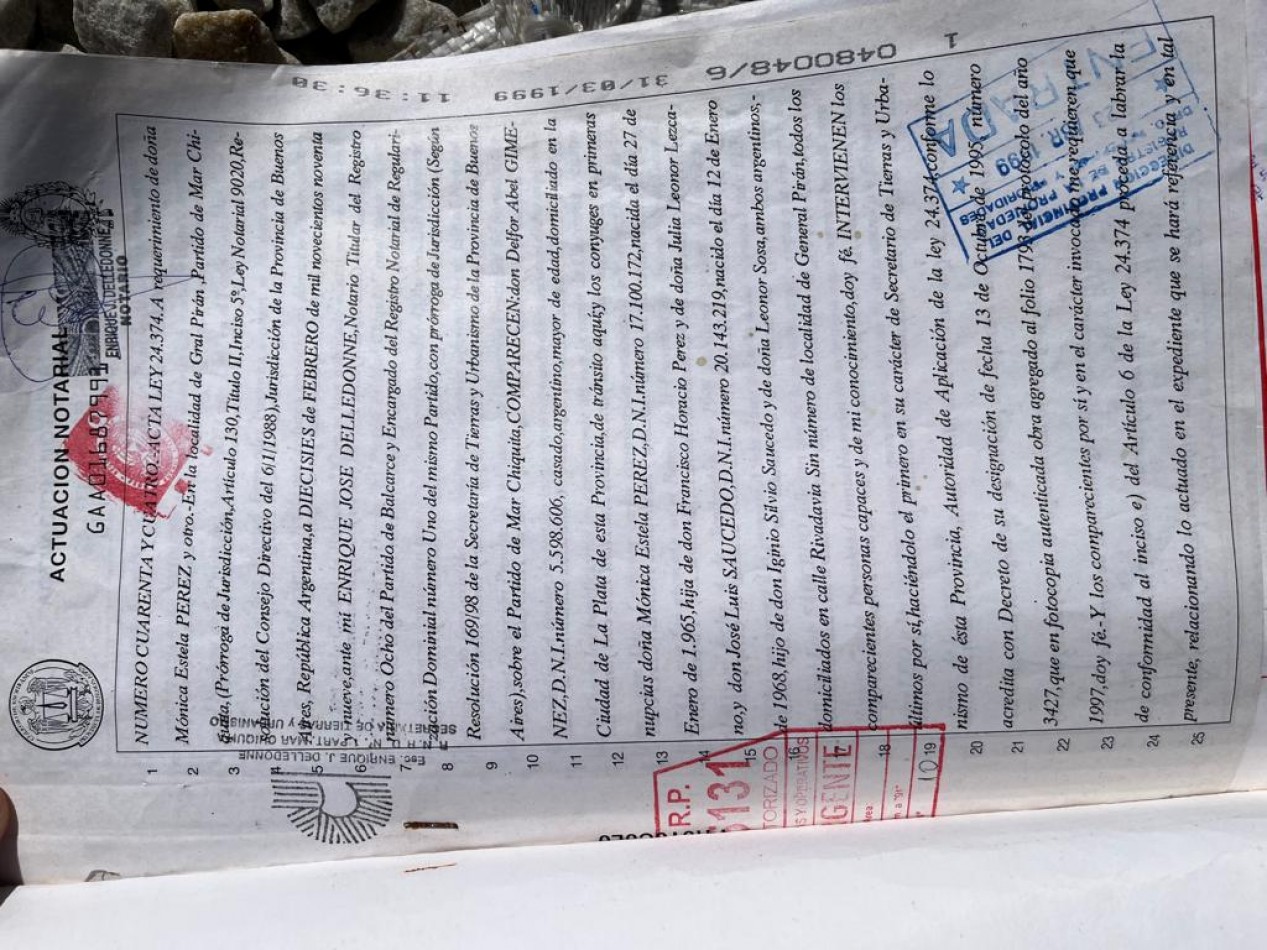 ACTUACION NOTARIAL
ENRIQUE J. DELLEDONNE
NOTARIO
1 NUMERO CUARENTA Y CUATRO. ACTA LEY 24.374. A requerimiento de doña
2 Mónica Estela PEREZ y otro.-En la localidad de Gral Pirán ,Partido de Mar Chi-
3 (Prórroga de Jurisdicción,Artículo 130,Título II,Inciso 5º,Ley Notarial 9020,Re-
4 solución del Consejo Directivo del 6/1/1988),Jurisdicción de la Provincia de Buenos
5 Aires, República Argentina,a DIECISIES de FEBRERO de mil novecientos noventa
6 y nueve,ante mi ENRIQUE JOSE DELLEDONNE,Notario Titular del Registro
7 número Ocho del Partido de Balcarce y Encargado del Registro Notarial de Regulari-
8 zación Dominial número Uno del mismo Partido,con prórroga de Jurisdicción (Según
9 Resolución 169/98 de la Secretaria de Tierras y Urbanismo de la Provincia de Buenos
10 Aires),sobre el Partido de Mar Chiquita,COMPARECEN:don Delfor Abel GIME-
11 NEZ,D.N.I.número 5.598.606, casado,argentino,mayor de edad,domiciliado en la
12 Ciudad de La Plata de esta Provincia,de tránsito aquí;y los conyuges en primeras
13 nupcias doña Mónica Estela PEREZ,D.N.I.número 17.100.172,nacida el día 27 de
14 Enero de 1.965,hija de don Francisco Horacio Perez y de doña Julia Leonor Lezca-
15 no,y don José Luis SAUCEDO,D.N.I.número 20.143.219,nacido el día 12 de Enero
16 de 1968,hijo de don Iginio Silvio Saucedo y de doña Leonor Sosa,ambos argentinos,-
17 domiciliados en calle Rivadavia Sin número de localidad de General Pirán,todos los
18 comparecientes personas capaces y de mi conocimiento,doy fé. INTERVIENEN los
19 últimos por sí,haciéndolo el primero en su carácter de Secretario de Tierras y Urba-
20 nismo de ésta Provincia, Autoridad de Aplicación de la ley 24.374,conforme lo
21 acredita con Decreto de su designación de fecha 13 de Octubre de 1995 número
22 3427,que en fotocopia autenticada obra agregado al folio 1793 del protocolo del año
23 1997,doy fé.-Y los comparecientes por sí y en el carácter invocado me requieren que
24 de conformidad al inciso e) del Artículo 6 de la Ley 24.374 proceda a labrar la
25 presente, relacionando lo actuado en el expediente que se hará referencia y en tal
1 0480048/6 31/03/1999 11:36:30
Esc. ENRIQUE J. DELLEDONNE
SECRETARIA DE TIERRAS Y URBANISMO
DIRECCION PROVINCIAL
DEL REGISTRO DE LA PROPIEDAD
ENTRADA
1999
R.P.
131